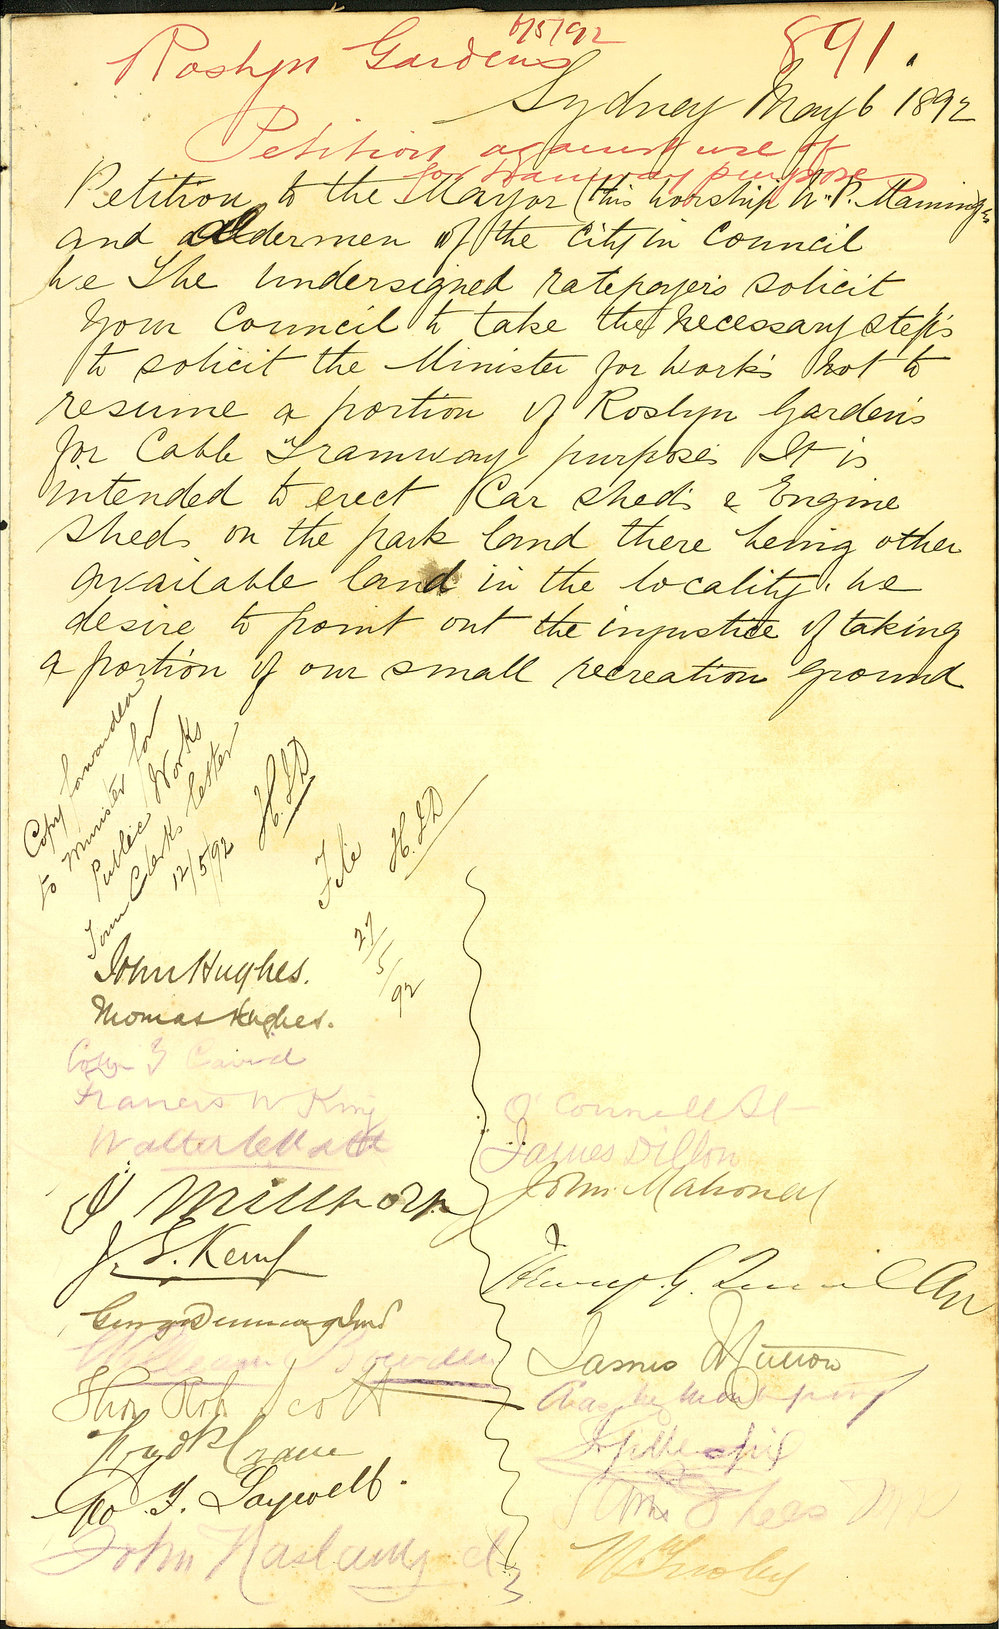 6/5/92
Roslyn Gardens
891.
Sydney May 6 1892
Petition against use of
for tramway purpose
Petition to the Mayor (his worship W. P. Manning Esq
and aldermen of the City in Council
We The Undersigned ratepayers solicit
Your Council to take the necessary steps
to solicit the Minister for Works not to
resume a portion of Roslyn Gardens
for Cable Tramway purposes It is
intended to erect Car sheds & Engine
sheds on the park land there being other
available land in the locality. We
desire to point out the injustice of taking
a portion of our small recreation ground
Copy forwarded
to Minister for
Public Works
Town Clerks letter
12/5/92
File
27/5/92
John Hughes.
Thomas Hughes.
Francis W King
Walter
Millhorn
J. S. Kemp
William Bowden
Thos Robt Scott
Geo. F. Saywell.
John Haslam
O'Connell St
James Dillon
John Mahony
Henry G.
James